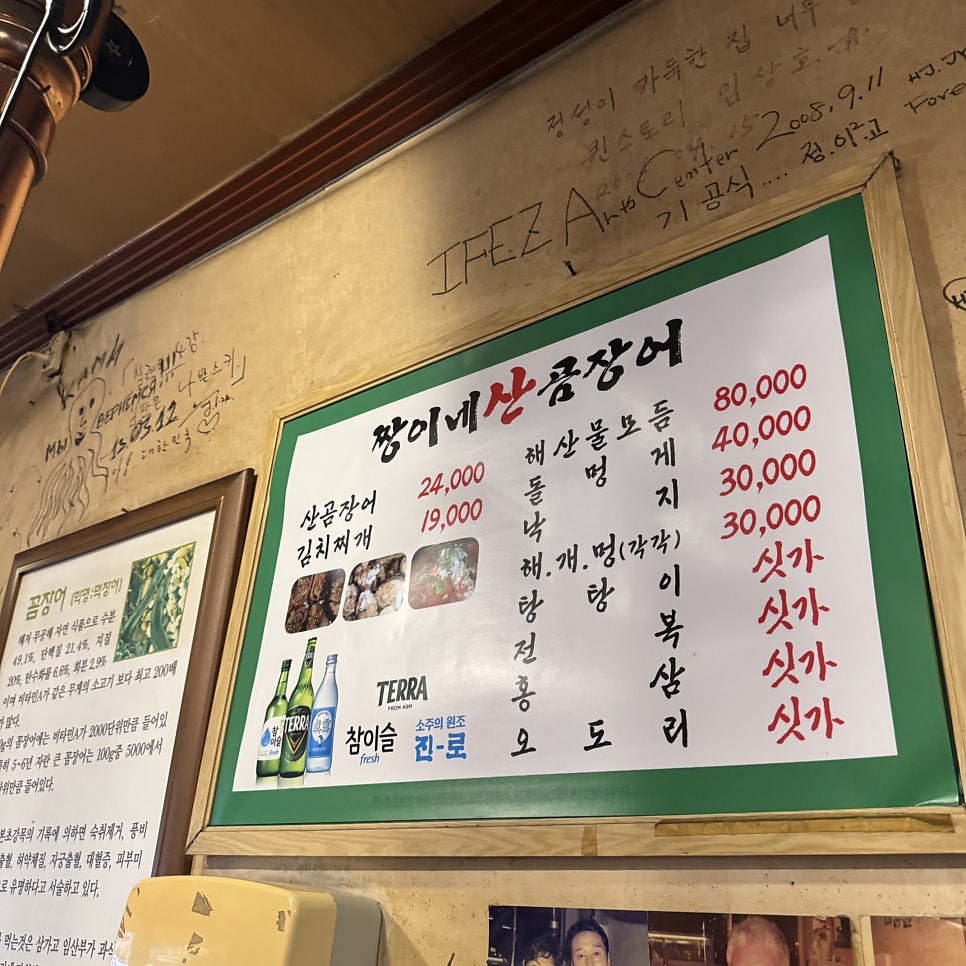 정성이 가득한 집 너무
퀸스토리 임상호
IFEZ Arts Center 2008.9.11
기공식.... 정.이².고
MANH
15.05.12
대한민국
짱이네산곰장어
산곰장어 24,000
김치찌개 19,000
해산물모듬 80,000
돌멍게 40,000
낙지 30,000
해.개.멍(각각) 30,000
탕탕이 싯가
전복 싯가
홍삼 싯가
오도리 싯가
참이슬
fresh
TERRA
TERRA
FROM AGM
참이슬
fresh
소주의 원조
진-로
꼼장어 (먹명:먹장어)
해저 무공해 자연 식품으로 수분
49.1%, 단백질 21.4%, 지질
20%, 탄수화물 6.6%, 회분 2.9%
이며 비타민A가 같은 무게의 소고기 보다 최고 200배
많다.
0g의 꼼장어에는 비타민A가 2000단위만큼 들어있
특히 5~6년 자란 큰 꼼장어는 100g중 5000에서
단위만큼 들어있다.
본초강목의 기록에 의하면 숙취제거, 풍비
출혈, 허약체질, 자궁출혈, 대혈증, 피부미
로 유명하다고 서술하고 있다.
먹는것은 삼가고 임산부가 과